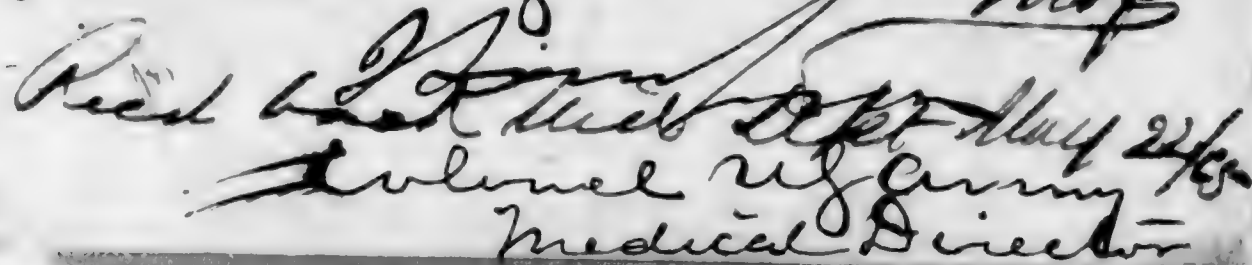 Recd back Med Dept May 22/65
Colonel US Army
Medical Director